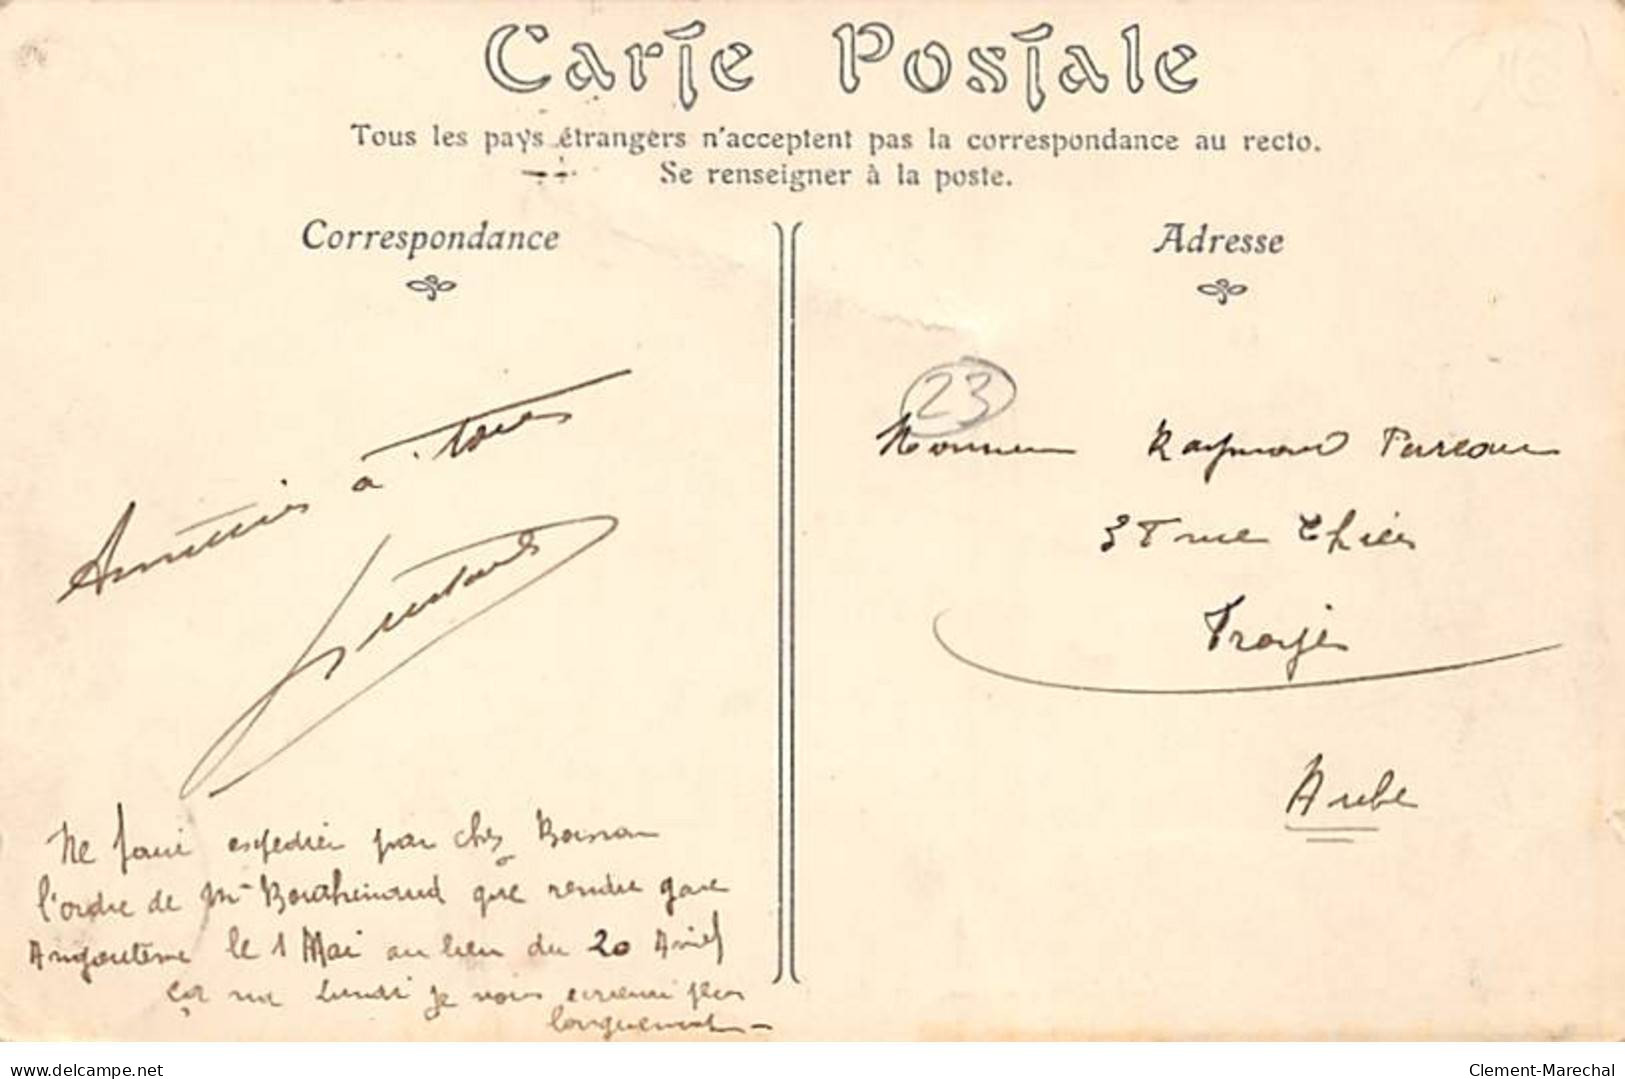 Carte Postale
Tous les pays étrangers n'acceptent pas la correspondance au recto.
Se renseigner à la poste.
Correspondance
Adresse
23
Amitiés à tous
Monsieur Raymond
37 rue Thiers
Troyes
Aube
Ne faire expédier par chez
l'ordre de Mr que rendre gare
Angoulême le 1 Mai au lieu du 20 Avril
Lundi je vous écrirai plus
longuement
www.delcampe.net
Clement-Marechal